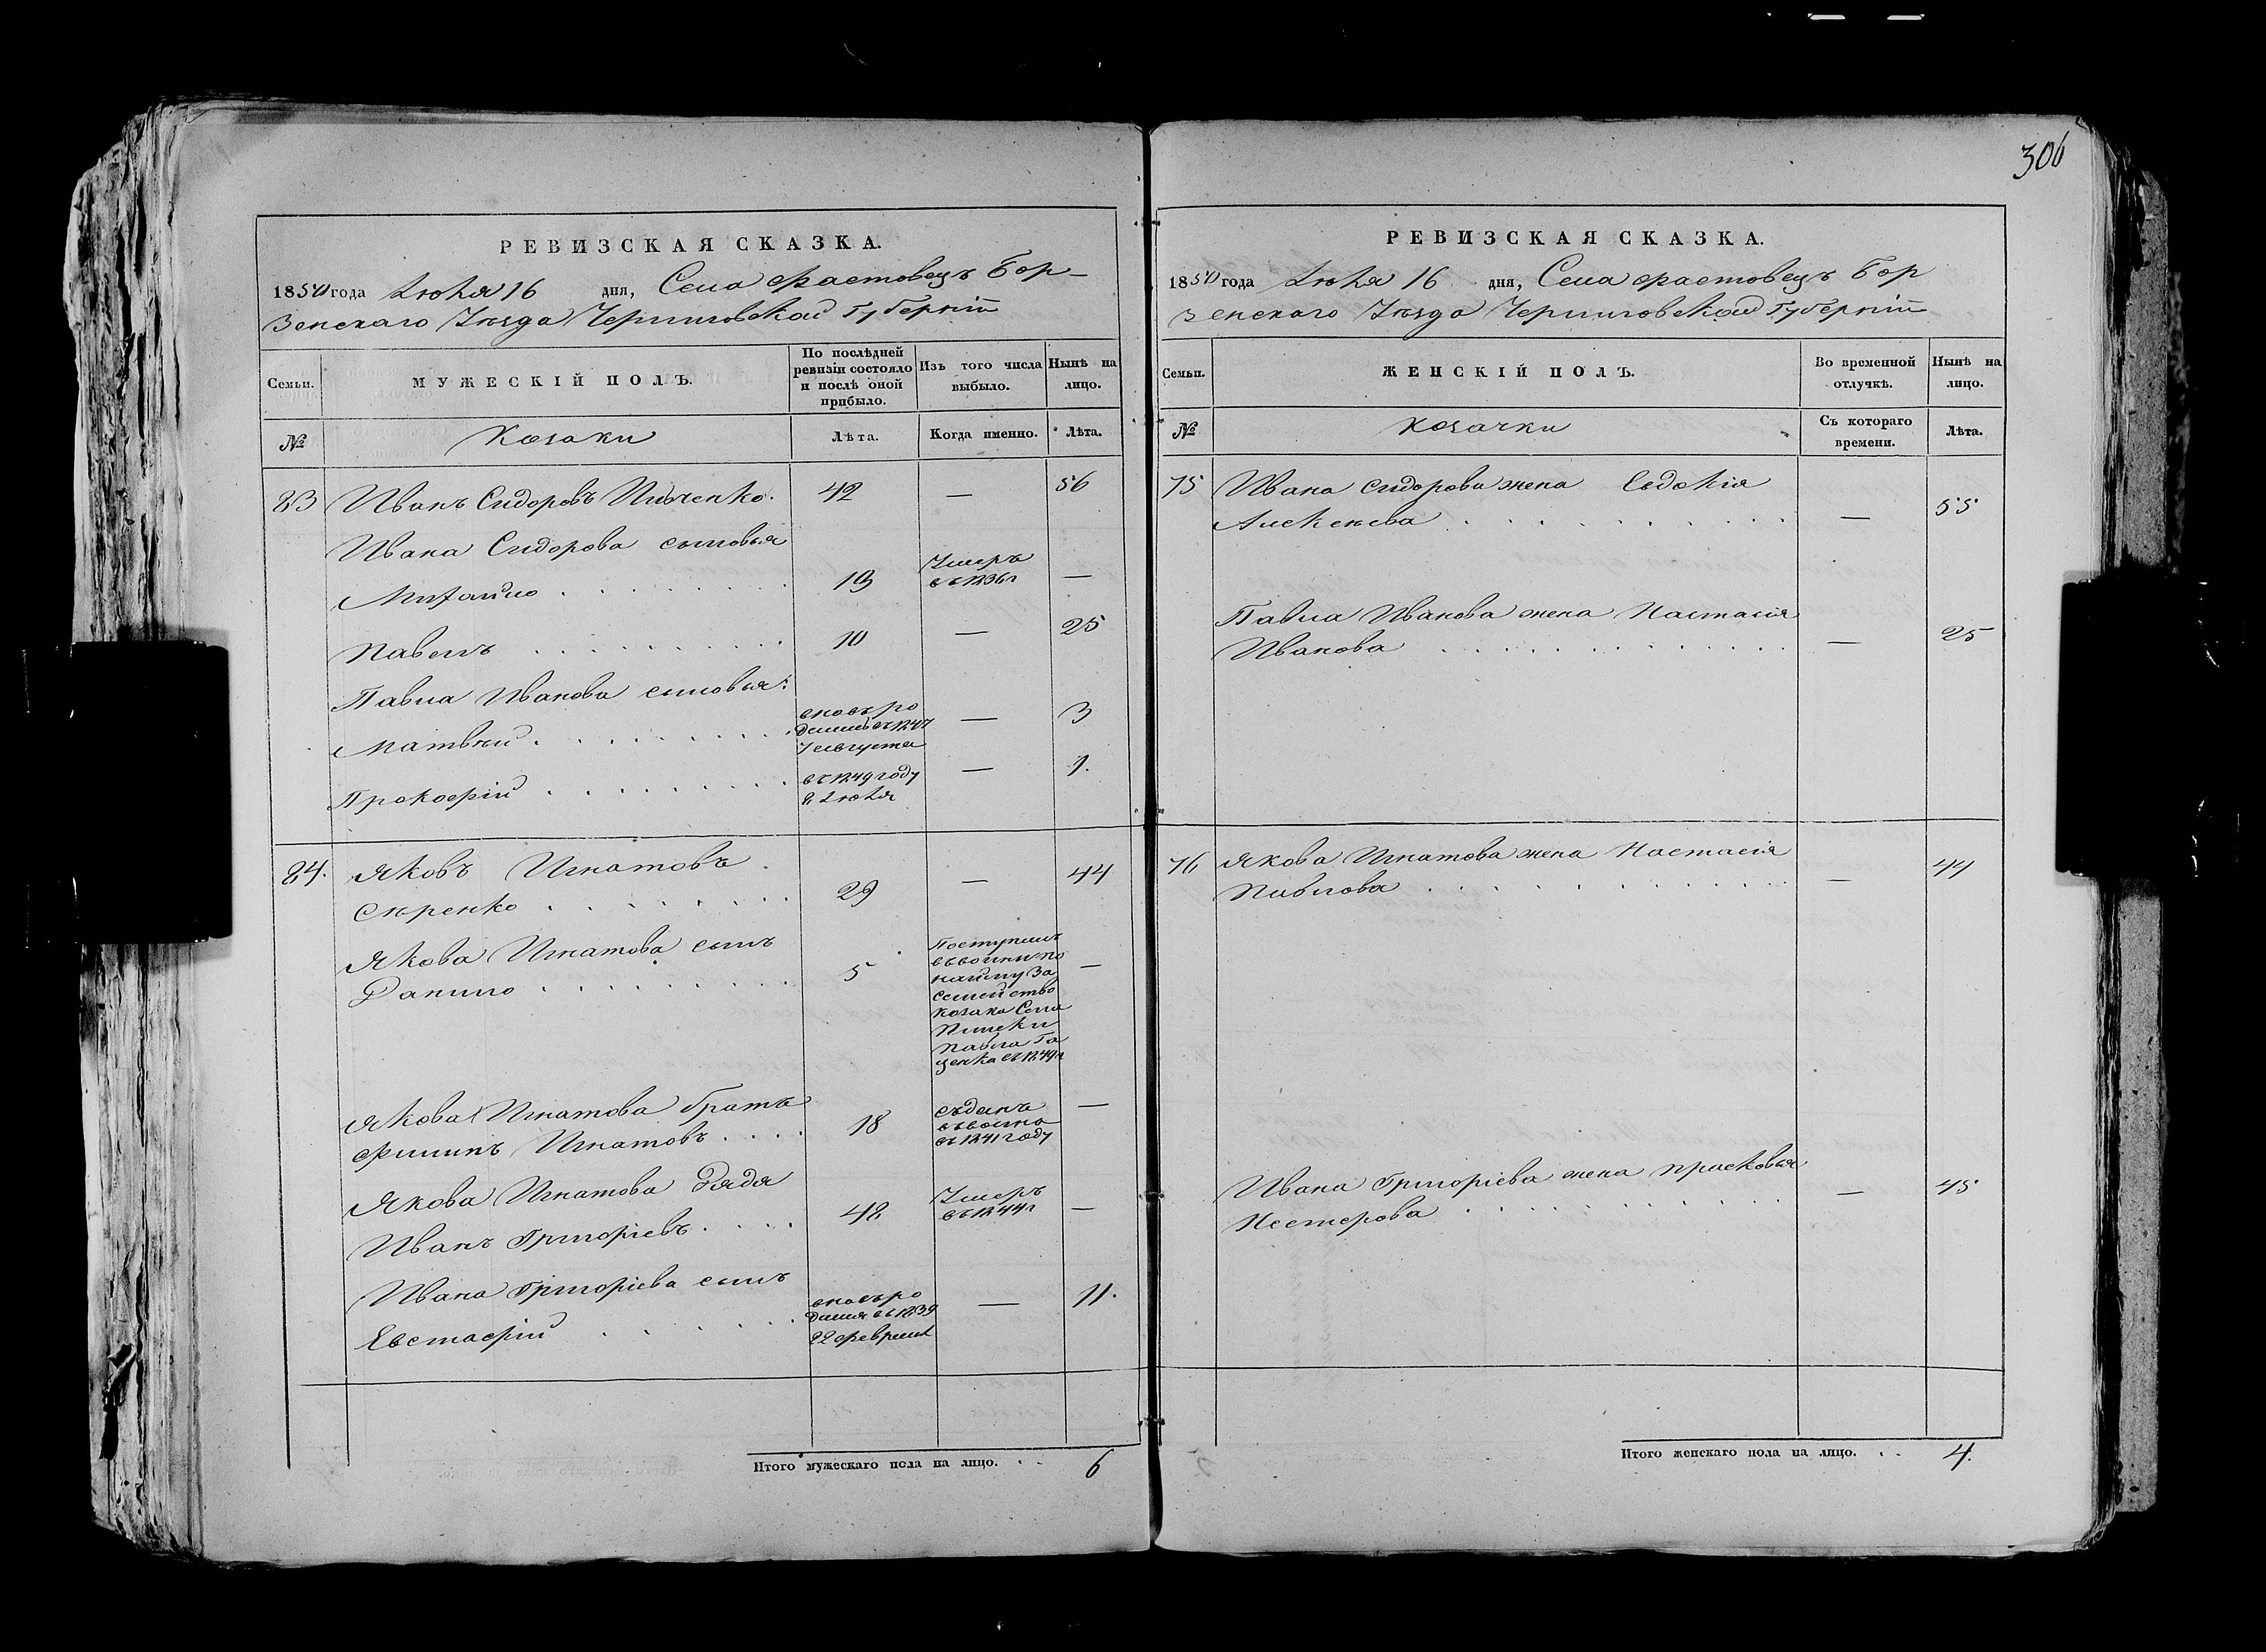 306
РЕВИЗСКАЯ СКАЗКА.
1850 года Июля 16 дня, Села Фастовецъ Бор-
зенскаго Уѣзда Черниговской Губерніи
Семьи.
МУЖЕСКІЙ ПОЛЪ.
По послѣдней ревизіи состояло и послѣ оной прибыло.
Изъ того числа выбыло.
Нынѣ на лицо.
№
Козаки
Лѣта.
Когда именно.
Лѣта.
83 Иванъ Сидоровъ Пивченко. 42 — 56
Ивана Сидорова сыновья
Михайло 19 Умеръ въ 1836г —
Павелъ 10 — 25
Павла Иванова сыновья:
Матвѣй вновь ро дился въ 1847 7 августа — 3
Прокофій въ 1849 году 8 Июля — 1.
84. Яковъ Игнатовъ
Сѣренко 29 — 44
Якова Игнатова сынъ
Данило 5 —
Поступилъ
въ воины по
найму за
семейство
козака Села
Плиски
Павла
въ 1849г
Якова Игнатова братъ
Филипъ Игнатовъ 18 —
въ 1841 году
Якова Игнатова дядя
Иванъ Григоріевъ 48 Умеръ въ 1844г —
Ивана Григоріева сынъ
Евстафій вновь ро дился въ 1839 22 февраля — 11.
Итого мужескаго пола на лицо. 6
РЕВИЗСКАЯ СКАЗКА.
1850 года Июля 16 дня, Села Фастовецъ Бор
зенскаго Уѣзда Черниговской Губерніи
Семьи.
ЖЕНСКІЙ ПОЛЪ.
Во временной отлучкѣ.
Нынѣ на лицо.
№
Козачки
Съ котораго времени.
Лѣта.
75 Ивана Сидорова жена Евдокія
Алексѣева — 55
Павла Иванова жена Настасія
Иванова — 25
76 Якова Игнатова жена Настасія
Павлова — 44
Ивана Григоріева жена Прасковья
Нестерова — 45
Итого женскаго пола на лицо. 4.